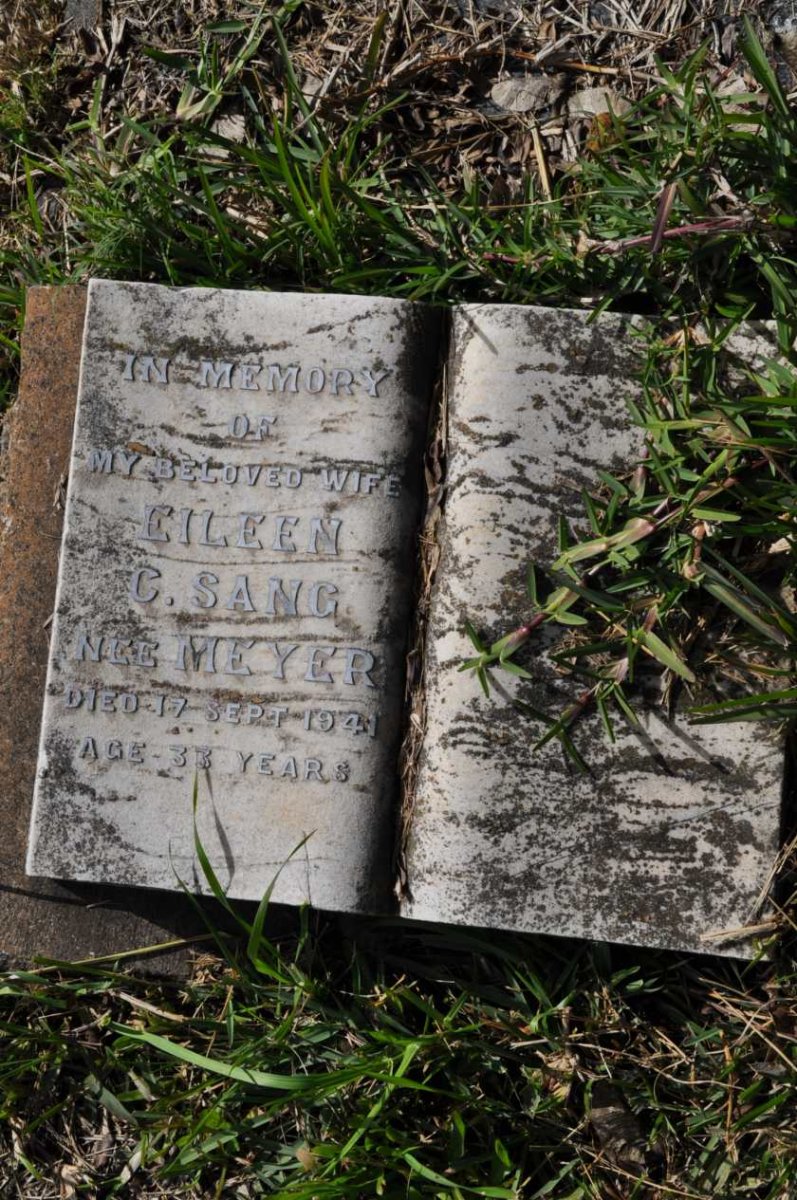 IN MEMORY
OF
MY BELOVED WIFE
EILEEN
C. SANG
NEE MEYER
DIED 17 SEPT 1941
AGE 33 YEARS